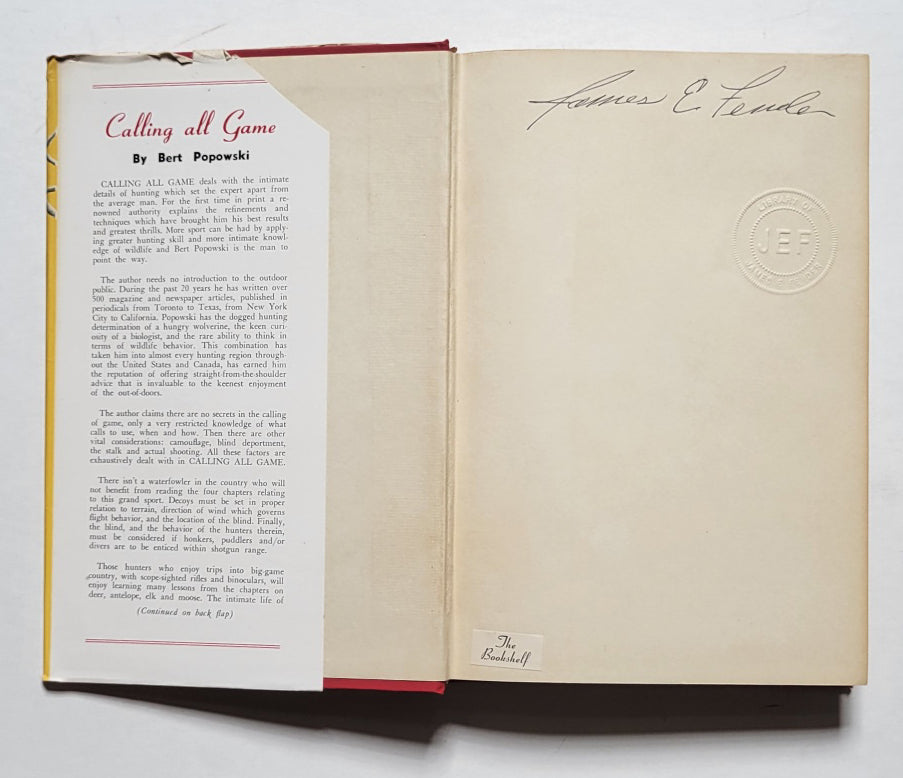 Calling all Game
By Bert Popowski
CALLING ALL GAME deals with the intimate
details of hunting which set the expert apart from
the average man. For the first time in print a re-
nowned authority explains the refinements and
techniques which have brought him his best results
and greatest thrills. More sport can be had by apply-
ing greater hunting skill and more intimate knowl-
edge of wildlife and Bert Popowski is the man to
point the way.
The author needs no introduction to the outdoor
public. During the past 20 years he has written over
500 magazine and newspaper articles, published in
periodicals from Toronto to Texas, from New York
City to California. Popowski has the dogged hunting
determination of a hungry wolverine, the keen curi-
osity of a biologist, and the rare ability to think in
terms of wildlife behavior. This combination has
taken him into almost every hunting region through-
out the United States and Canada, has earned him
the reputation of offering straight-from-the-shoulder
advice that is invaluable to the keenest enjoyment
of the out-of-doors.
The author claims there are no secrets in the calling
of game, only a very restricted knowledge of what
calls to use, when and how. Then there are other
vital considerations: camouflage, blind deportment,
the stalk and actual shooting. All these factors are
exhaustively dealt with in CALLING ALL GAME.
There isn't a waterfowler in the country who will
not benefit from reading the four chapters relating
to this grand sport. Decoys must be set in proper
relation to terrain, direction of wind which governs
flight behavior, and the location of the blind. Finally,
the blind, and the behavior of the hunters therein,
must be considered if honkers, puddlers and/or
divers are to be enticed within shotgun range.
Those hunters who enjoy trips into big-game
country, with scope-sighted rifles and binoculars, will
enjoy learning many lessons from the chapters on
deer, antelope, elk and moose. The intimate life of
(Continued on back flap)
James E Fender
LIBRARY OF
JEF
JAMES E FENDER
The
Bookshelf